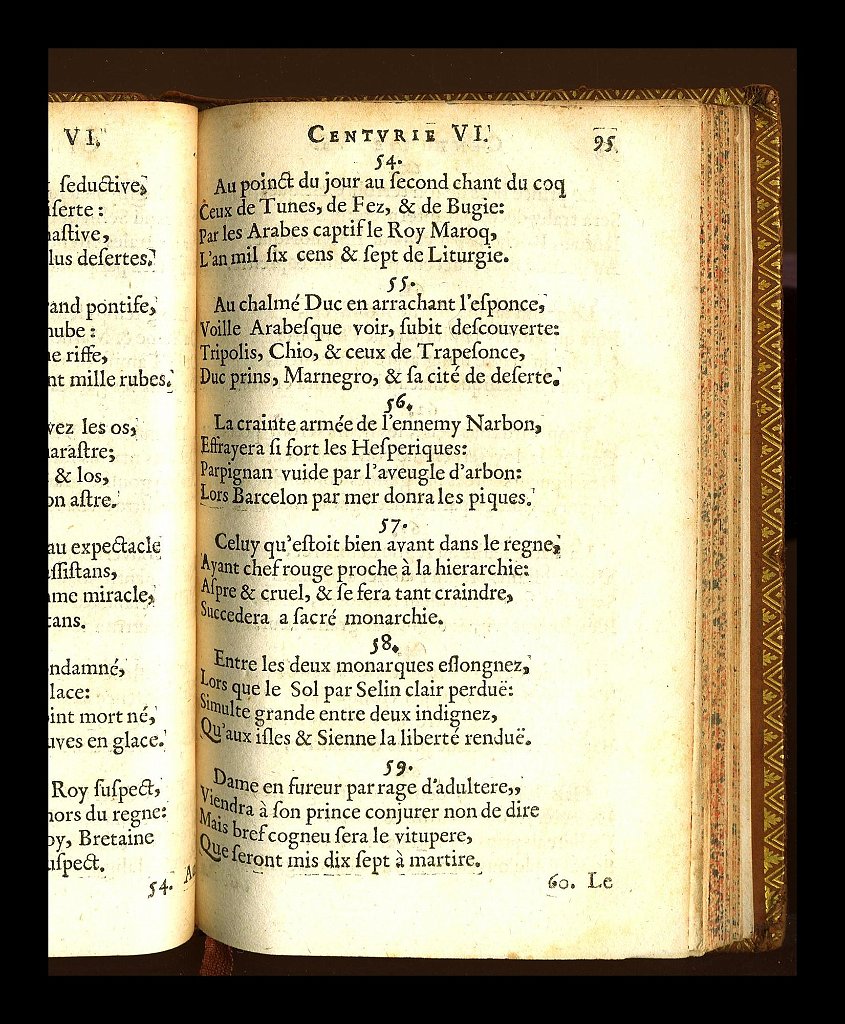 VI.
seductiue,
iserte:
nastive,
lus desertes.
and pontife,
nube:
e riffe,
nt mille rubes.
vez les os,
narastre;
& los,
on astre.
au expectacle
assistans,
me miracle,
tans.
ndamné,
lace:
int mort né,
uves en glace.
Roy suspect,
hors du regne:
oy, Bretaine
uspect.
54. Au
CENTVRIE VI.
95
54.
Au poinct du jour au second chant du coq
Ceux de Tunes, de Fez, & de Bugie:
Par les Arabes captif le Roy Maroq,
L'an mil six cens & sept de Liturgie.
55.
Au chalmé Duc en arrachant l'esponce,
Voille Arabesque voir, subit descouverte:
Tripolis, Chio, & ceux de Trapesonce,
Duc prins, Marnegro, & sa cité de deserte.
56.
La crainte armée de l'ennemy Narbon,
Effrayera si fort les Hesperiques:
Parpignan vuide par l'aveugle d'arbon:
Lors Barcelon par mer donra les piques.
57.
Celuy qu'estoit bien avant dans le regne,
Ayant chef rouge proche à la hierarchie:
Aspre & cruel, & se fera tant craindre,
Succedera a sacré monarchie.
58.
Entre les deux monarques eslongnez,
Lors que le Sol par Selin clair perduë:
Simulte grande entre deux indignez,
Qu'aux isles & Sienne la liberté renduë.
59.
Dame en fureur par rage d'adultere,,
Viendra à son prince conjurer non de dire
Mais bref cogneu sera le vitupere,
Que seront mis dix sept à martire.
60. Le